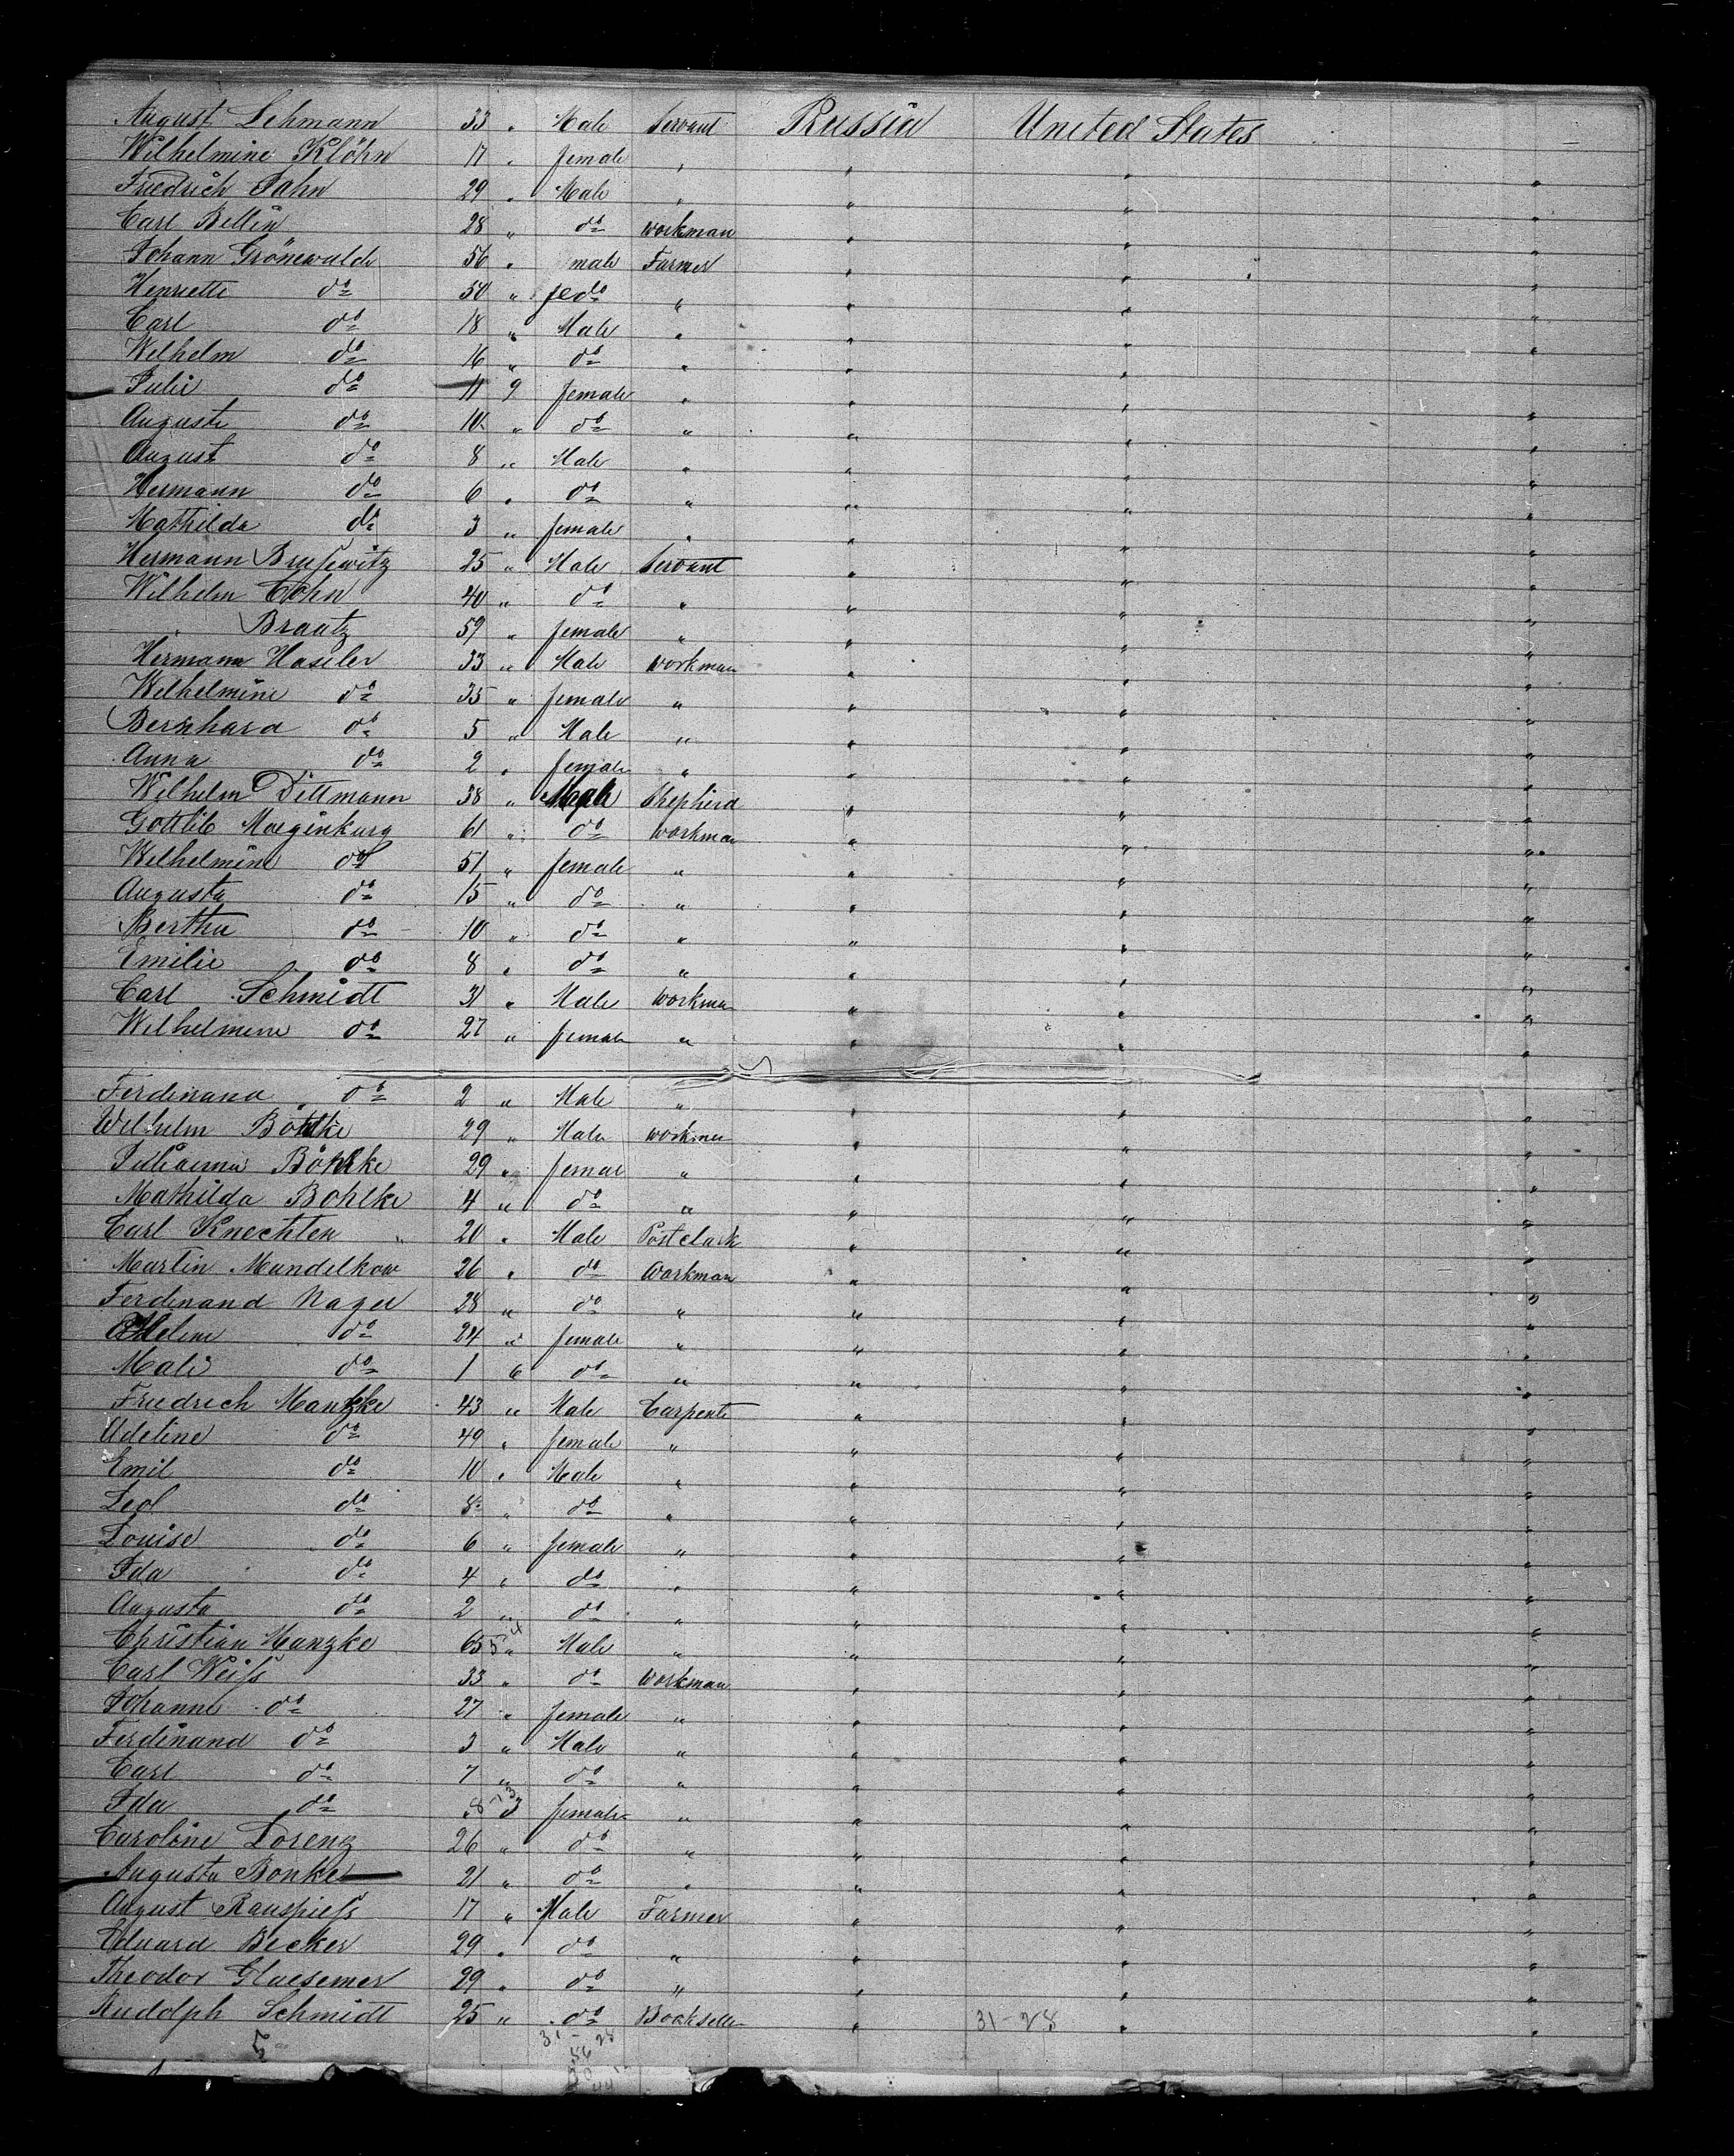 August Lehmann 33 " Male Servant Russia United States
Wilhelmine Klöhn 17 " female " " " "
Friedrich Jahn 29 " Male " " " "
Carl Bellin 28 " do workman " " "
Johann Grönewalde 56 " male Farmer " " "
Henriette do 50 " fedo " " " "
Carl do 18 " Male " " " "
Wilhelm do 16 " do " " " "
Julie do 11 9 female " " " "
Auguste do 10 " do " " " "
August do 8 " Male " " " "
Hermann do 6 " do " " " "
Mathilda do 3 " female " " " "
Hermann Brusewitz 25 " Male Servant " " "
Wilhelm Cohn 40 " do " " " "
Braatz 59 " female " " " "
Hermann Haseler 33 " Male workman " " "
Wilhelmine do 35 " female " " " "
Bernhard do 5 " Male " " " "
Anna do 2 " female " " " "
Wilhelm Dittmann 38 " Male Shepherd " " "
Gottlib Moeginburg 61 " do workman " " "
Wilhelmine do 51 " female " " " "
Augusta do 15 " do " " " "
Bertha do 10 " do " " " "
Emilie do 8 " do " " " "
Carl Schmidt 31 " Male workman " " "
Wilhelmine do 27 " female " " " "
Ferdinand do 2 " Male " " " "
Wilhelm Böhlke 29 " Male workman " " "
Böhlke 29 " female " " " "
Mathilda Bohlke 4 " do " " " "
Carl Knechten " 20 " Male Post clark " " "
Martin Mandelkow 26 " do Workman " " "
Ferdinand Nagel 28 " do " " " "
Helene do 24 " female " " " "
Mali do 1 6 do " " " "
Friedrich Manzke 43 " Male Carpente " " "
Adeline do 49 " female " " " "
Emil do 10 " Male " " " "
Leol do 8 " do " " " "
Louise do 6 " female " " " "
Ida do 4 " do " " " "
Augusta do 2 " do " " " "
Christian Manzke 65 " Male " " " "
Carl Weiss 33 " do workman " " "
Johanne do 27 " female " " " "
Ferdinand do 3 " Male " " " "
Carl do 7 " do " " " "
Ida do 3 female " " " "
Caroline Lorenz 26 " do " " " "
Augusta Bonke 21 " do " " " "
August Rauspiess 17 " Male Farmer " " "
Eduard Becker 29 " do " " " "
Theodor Glaesemer 29 " do " " " "
Rudolph Schmidt 25 " do Bookselle " 31-28 " "
5 31-28
56
44